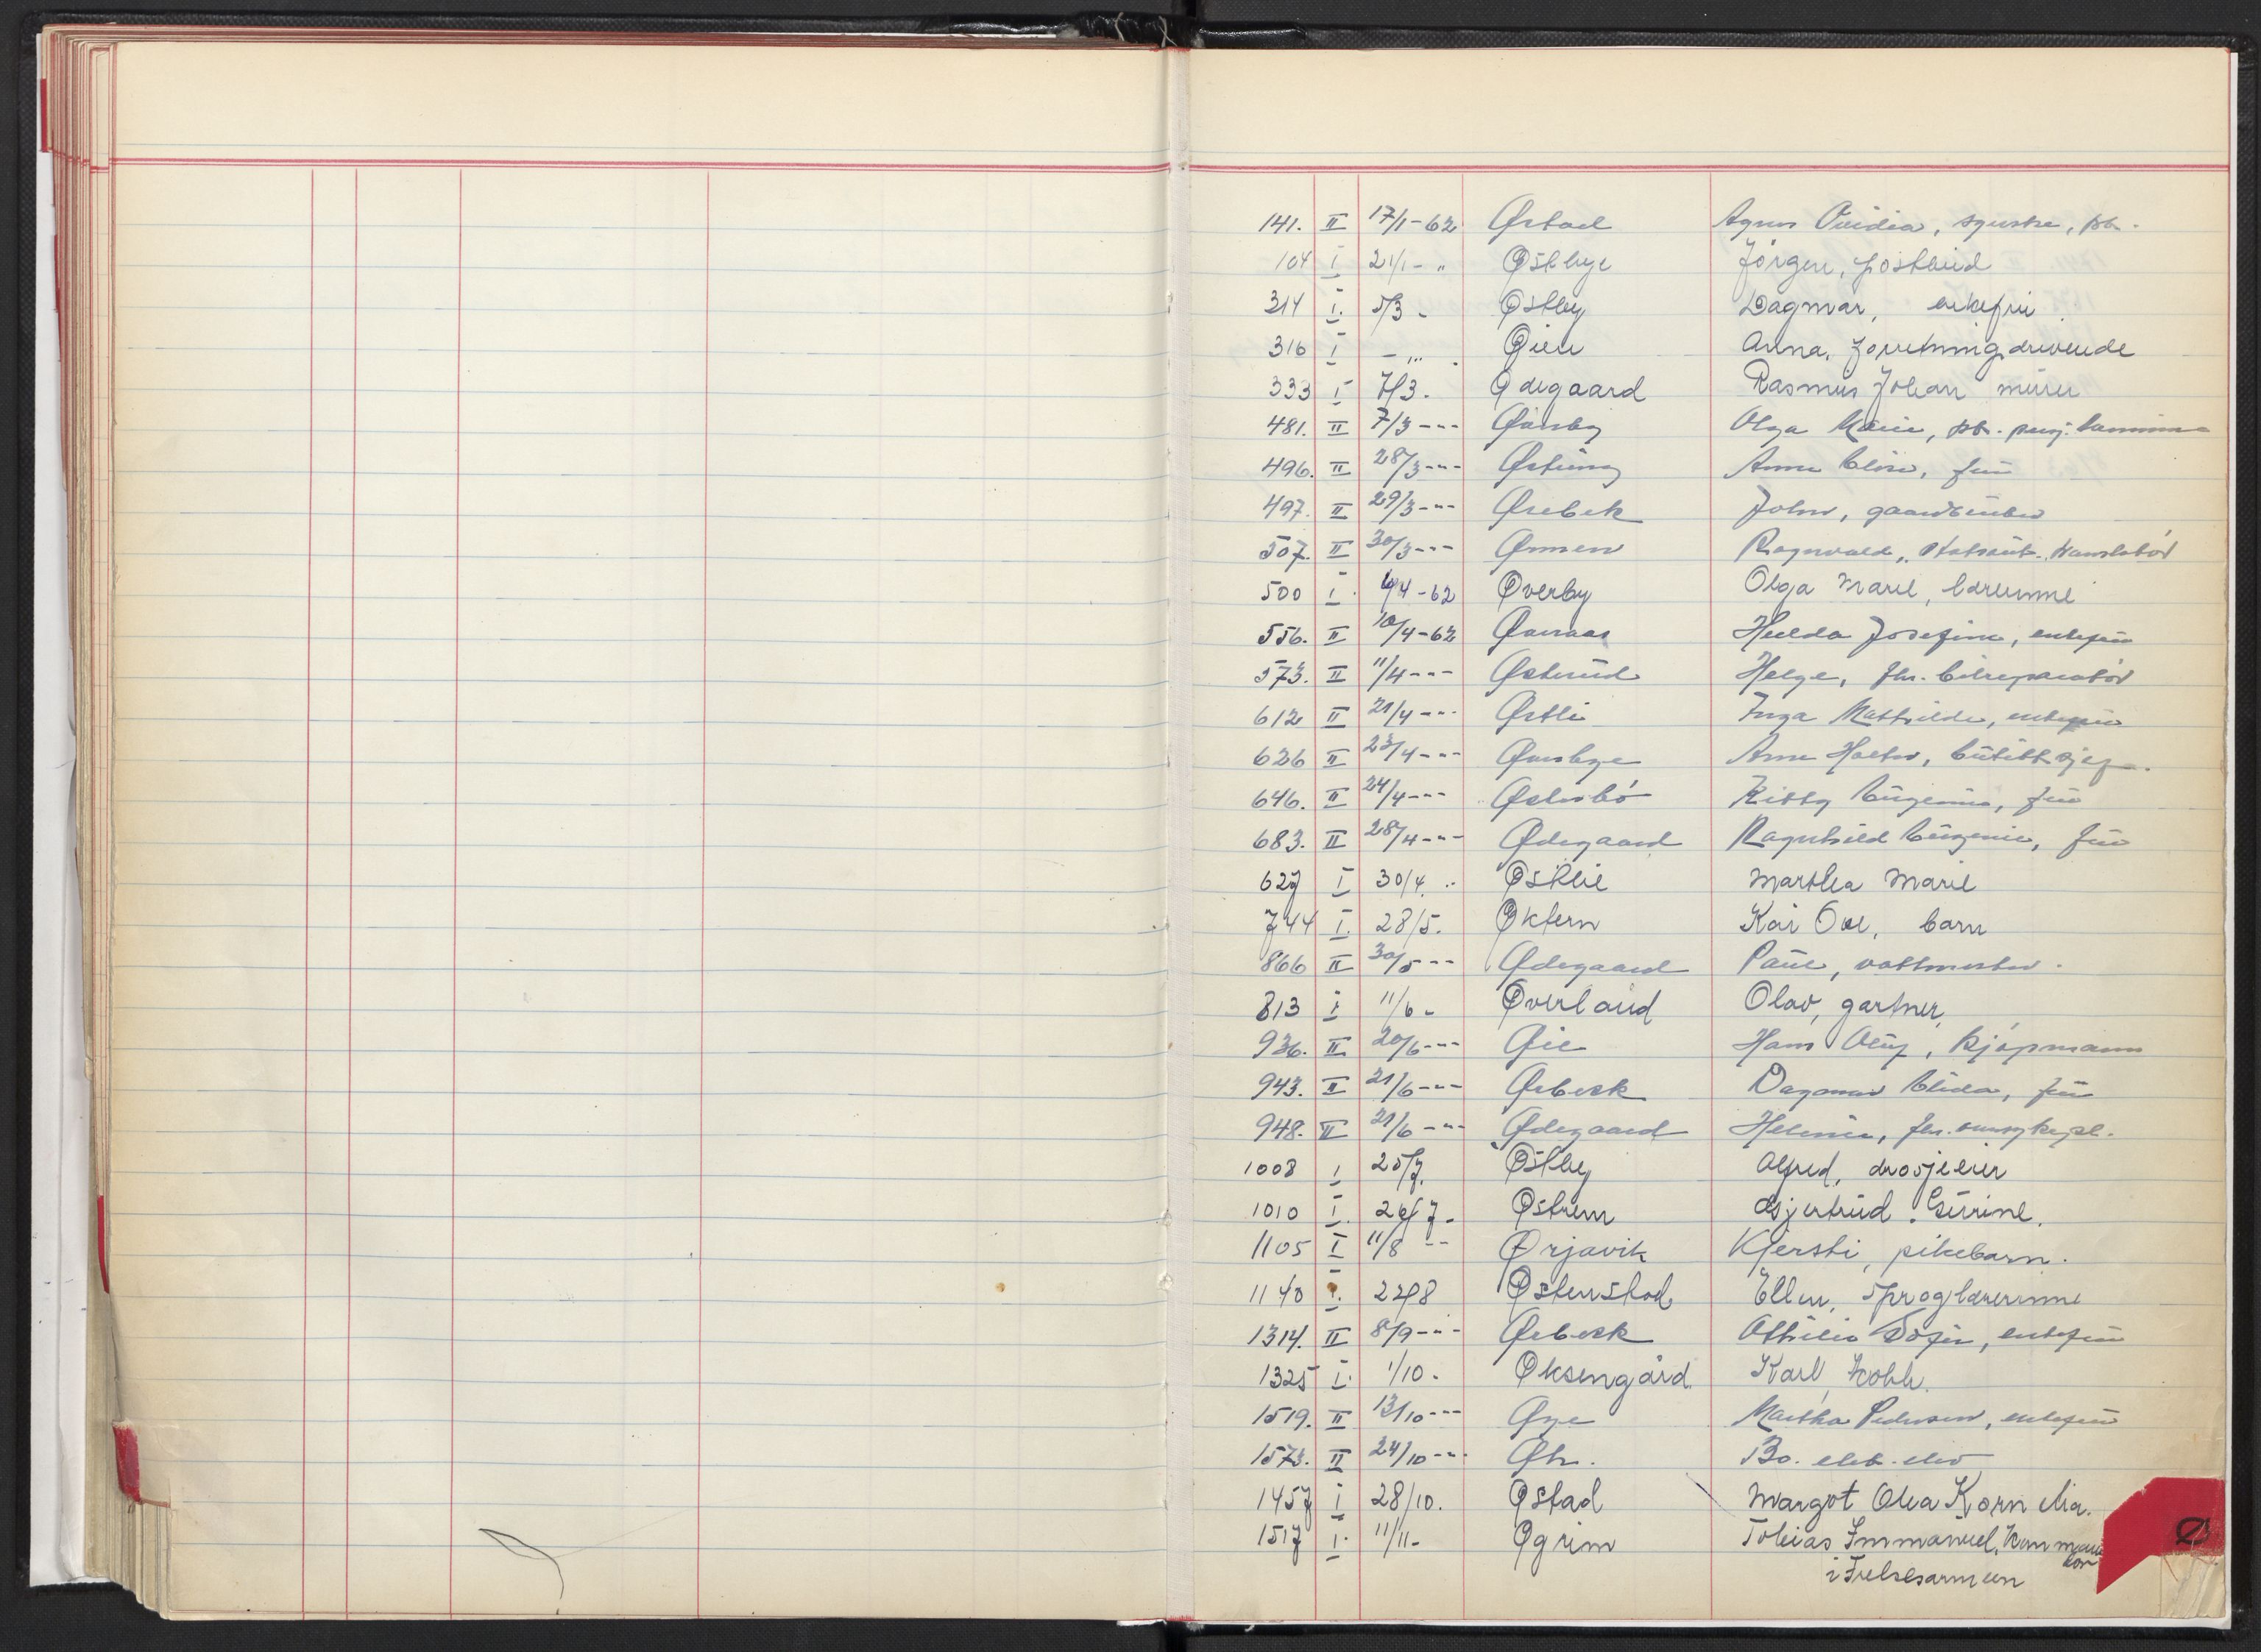 141. II 17/1-62 Østad Agnes Ovidia, sguske, pb.
104 I 21/1- " Østbye Jørgen, postbud
314 I. 5/3 - Østby Dagmar, enkefru
316 I - " - Øien Anna, forretningdrivende
333 I 7/3. Ødegaard Rasmus Johan murer
481. II 7/3 -"- Ørnsby Olga Marie, pb.
496. II 28/3 -"- Anna Elise, fru
497. II 29/3 -"- Ørebek John, gaardbruker
507. II 30/3 -"- Ragnvald,
500 I. 4/4-62 Øverby Olga Marie, lærerinne
556. II 10/4-62 Øveraas Hulda Josefine, enkefru
573. II 11/4 -"- Østerud Helge, fhv. bilreparatør
612 II 21/4 -"- Østli Inga Mathilde, enkefru
626 II 23/4 -"- Arne
646. II 24/4 -"- Østerbó Kitty Eugenie, fru
683. II 28/4 -"- Ødegaard Ragnhild Eugenie, fru
627 I 30/4. " Østlie Martha Marie
744 I. 28/5. Øktern Kai Ove, barn
866 II 30/5 -"- Ødegaard Paul, vaktmester.
813 I 11/6 - Øverland Olav, gartner,
936. II 20/6 -"- Øie Hans Oluf, kjøpmann
943. II 21/6 -"- Ørbeck Dagmar Elida, fru
948. II 21/6 -"- Ødegaard Helene, fhv.
1008 I 25/7. Østby Alfred, drosjeeier
1010 I. 26/7 - Østrem Gjertrud Gurine.
1105 I 11/8 -- Ørjavik Kjersti, pikebarn.
1140 I. 22/8 Østenstad Ellen, Sproglærerinne
1314. II 8/9 -"- Ørbeck Othilie Sofie, enkefru
1325 I. 1/10. Øksengård Karl,
1519. II 13/10 -"- Øye Martha Pedersen, enkefru
1573. II 24/10 -"- Øh. Bo. elek. elev
1457 I 28/10. Østad Margot Olea Kornelia.
1517 I. 11/11- Øgrim Tobias Immanuel, Kommandør
i Frelsesarmeen
Ø